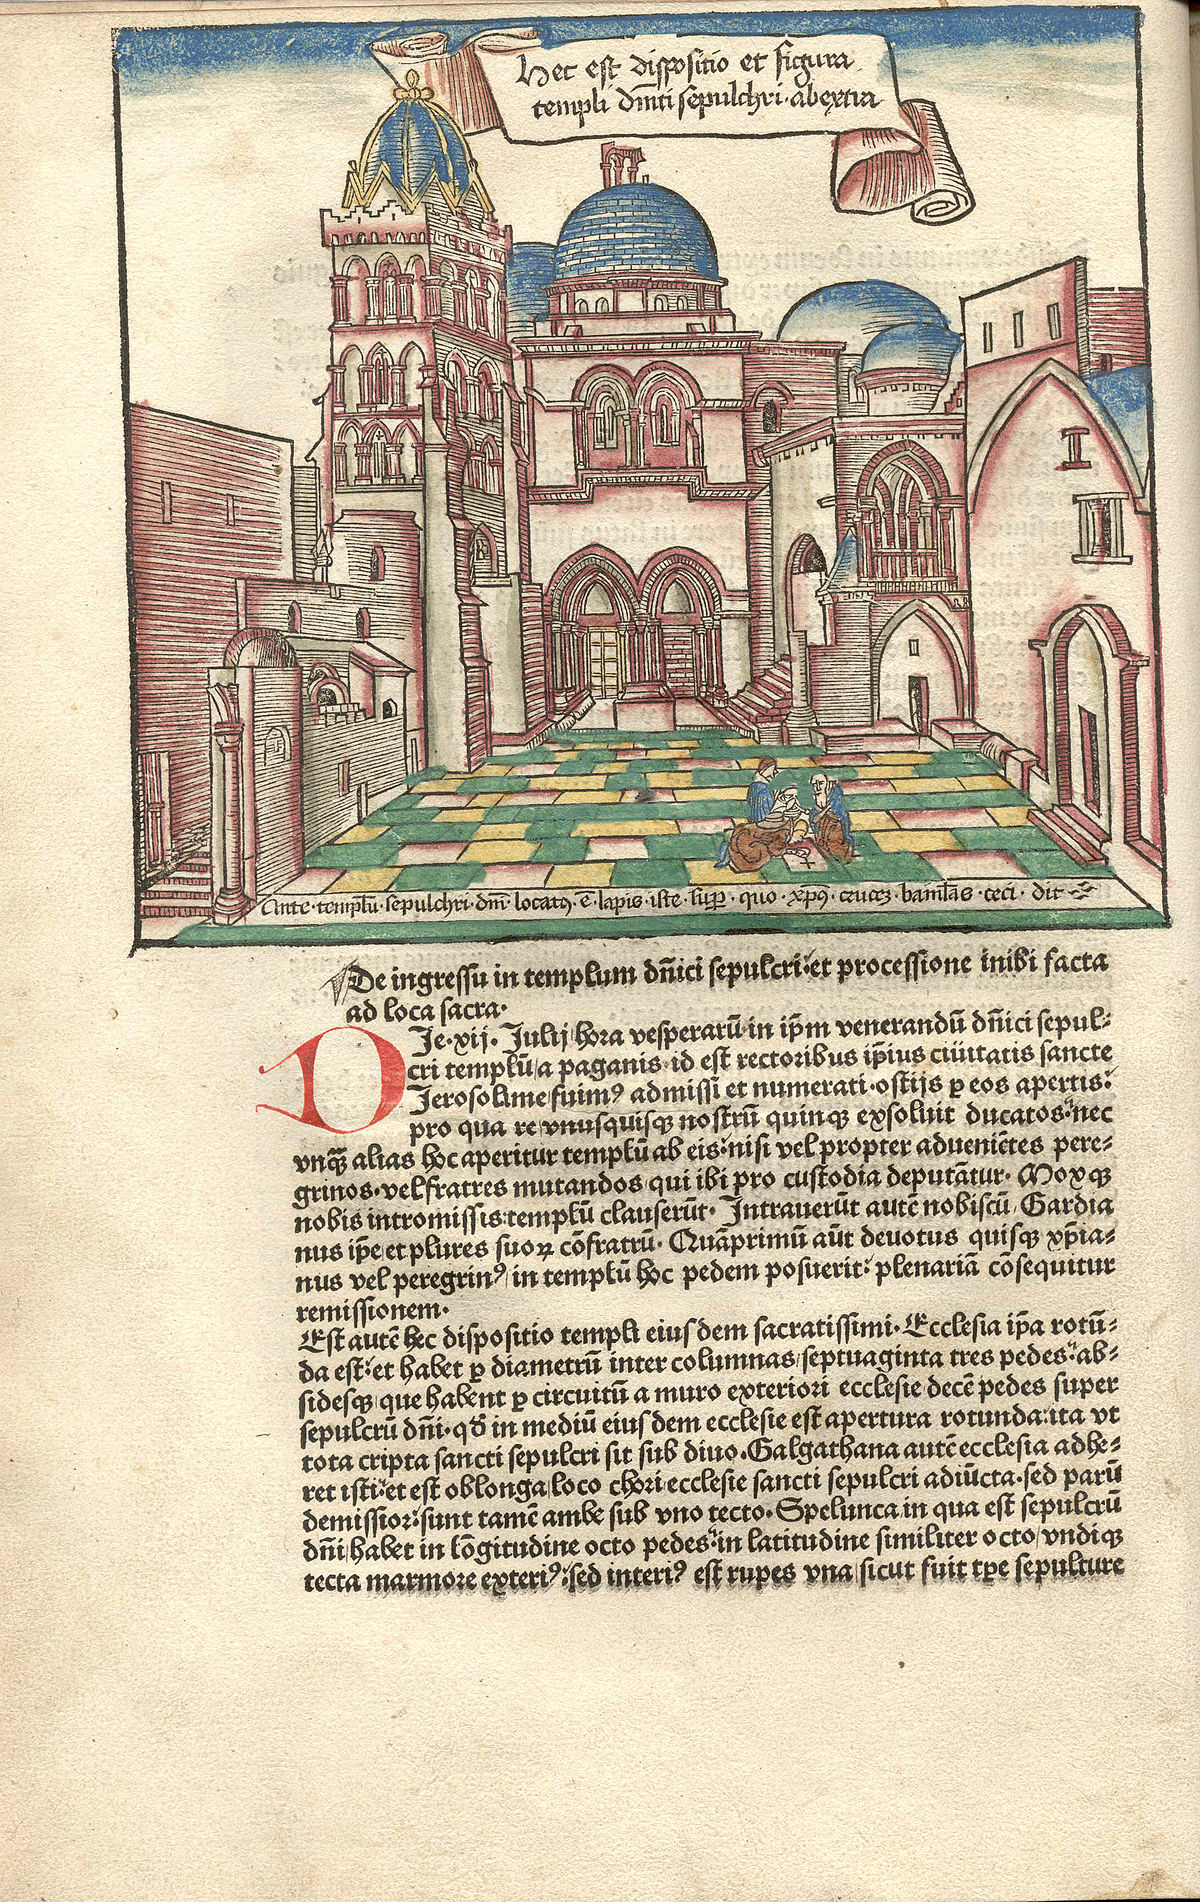 Hec est dispositio et figura
templi dn̄ici sepulchri abextra
Ante templū sepulchri dn̄i locatꝰ ē lapis iste sup̱ quo xp̄us crucez baiulās ceci dit
De ingressu in templum dn̄ici sepulcri: et processione inibi facta
ad loca sacra.
DIe xij. Julij hora vesperarū in ip̄m venerandū dn̄ici sepul-
cri templū a paganis id est rectoribus ip̄ius ciuitatis sancte
Jerosolime fuimꝰ admissi et numerati ostijs ꝑ eos apertis:
pro qua re vnusquisqꝫ nostrū quinqꝫ exsoluit ducatos: nec
vnqꝫ̄ alias hoc aperitur templū ab eis: nisi vel propter adueniētes pere-
grinos. vel fratres mutandos qui ibi pro custodia deputātur. Moxqꝫ
nobis intromissis: templū clauserūt. Intrauerūt autē nobiscū Gardia
nus ip̄e et plures suoꝝ cōfratrū. Quāprimū aūt deuotus quisqꝫ xp̄ia-
nus vel peregrinꝰ in templū hoc pedem posuerit: plenariā cōsequitur
remissionem.
Est autē hec dispositio templi eiusdem sacratissimi. Ecclesia ip̄a rotū-
da est: et habet ꝑ diametrū inter columnas septuaginta tres pedes: ab-
sidesqꝫ que habent ꝑ circuitū a muro exteriori ecclesie decē pedes super
sepulcrū dn̄i. qd̄ in mediū eiusdem ecclesie est apertura rotunda: ita vt
tota cripta sancti sepulcri sit sub diuo. Galgathana autē ecclesia adhe-
ret isti: et est oblonga loco chori ecclesie sancti sepulcri adiūcta. sed parū
demissior: sunt tamē ambe sub vno tecto. Spelunca in qua est sepulcrū
dn̄i habet in lōgitudine octo pedes: in latitudine similiter octo vndiqꝫ
tecta marmore exteriꝰ: sed interiꝰ est rupes vna sicut fuit tꝑe sepulture